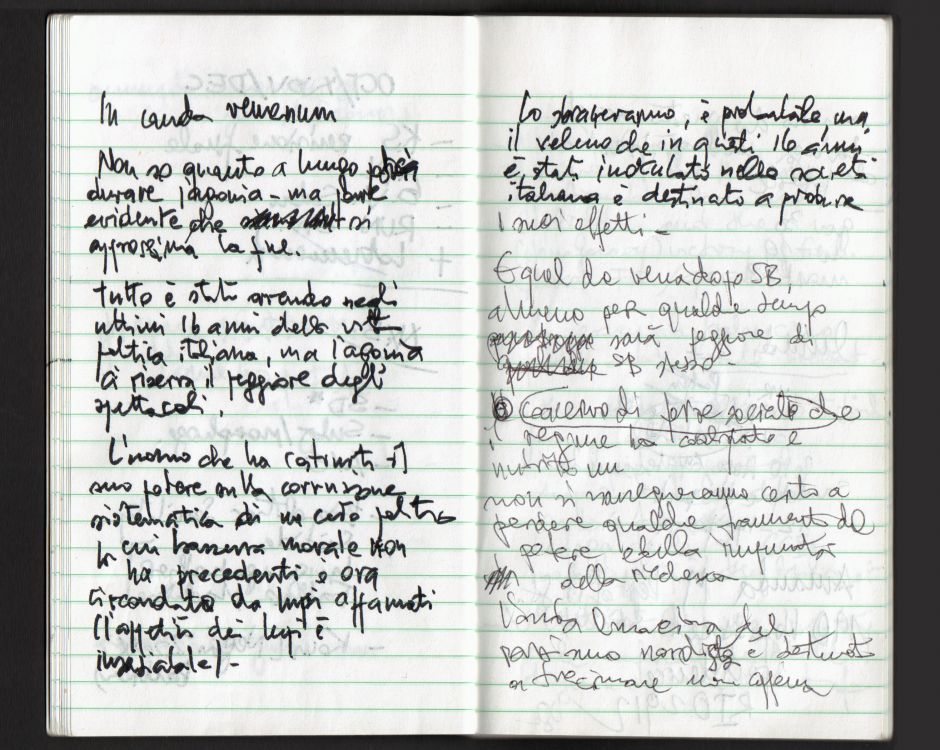 In cauda venenum
Non so quanto a lungo potrà
durare l'agonia - ma pare
evidente che si
approssima la fine.
Tutto è stato orrendo negli
ultimi 16 anni della vita
politica italiana, ma l'agonia
ci riserva il peggiore degli
spettacoli.
L'uomo che ha costruito il
suo potere sulla corruzione
sistematica di un ceto politico
la cui bassezza morale non
ha precedenti è ora
circondato da lupi affamati
(l'appetito dei lupi è
insaziabile) -
Lo sbraneranno, è probabile, ma
il veleno che in questi 16 anni
è stato inoculato nella società
italiana è destinato a produrre
i suoi effetti -
E quel da verrà dopo SB,
almeno per qualche tempo
sarà peggiore di
SB stesso -
coacervo di forze sociali che
il regime ha coalizzato e
nutrito
non si rassegneranno certo a
perdere qualche frammento del
potere e della
della medesima
del
è destinato
a tracimare non appena